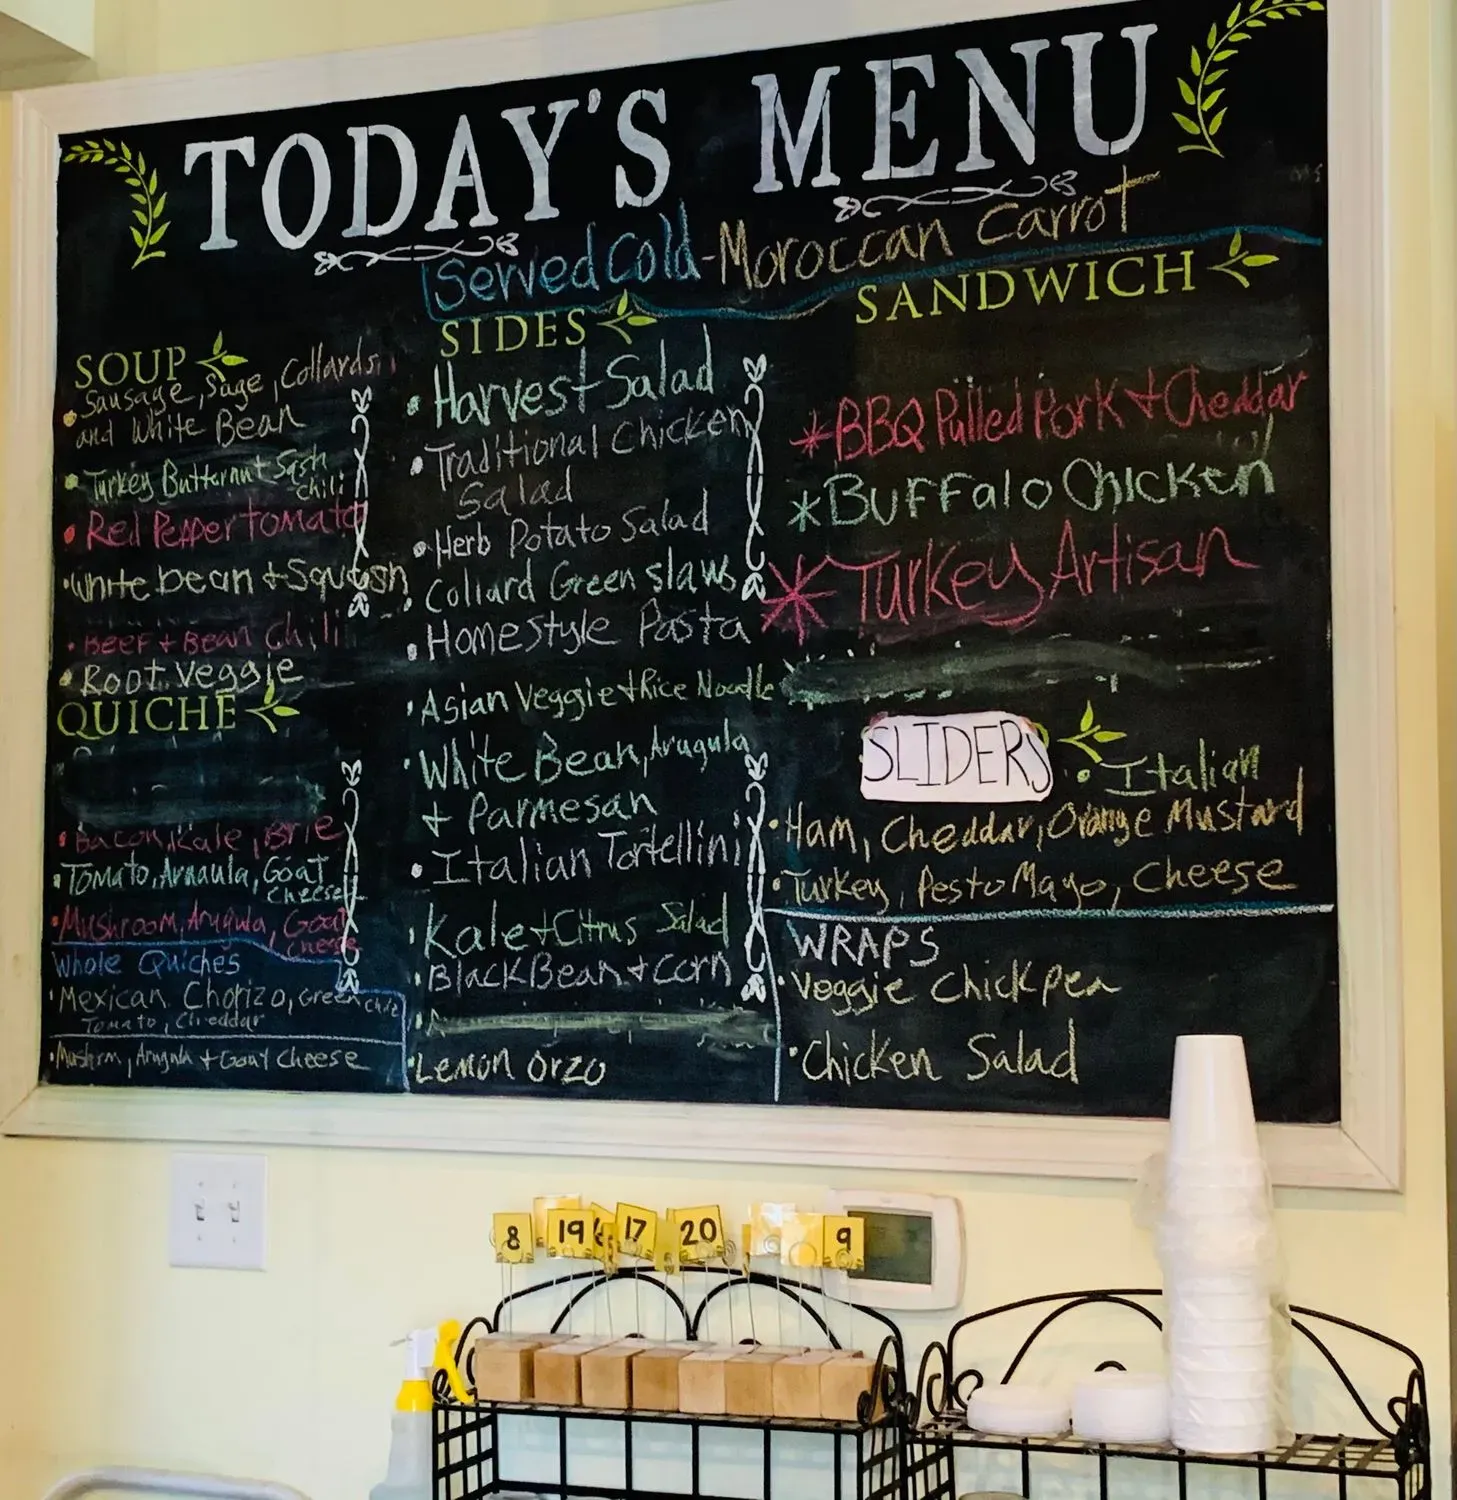 TODAY'S MENU
Served Cold - Moroccan Carrot
SOUP
• Sausage, Sage, Collards
and White Bean
• Turkey Butternut Sqsh
chili
• Red Pepper Tomato
• White bean + Squash
• BEEF + BEAN Chili
• Root Veggie
QUICHE
• Bacon, Kale, Brie
• Tomato, Aruaula, Goat
Cheese
• Mushroom, Arugula, Goat
Cheese
Whole Quiches
• Mexican Chorizo, Green Chile
Tomato, Cheddar
• Mushrm, Arugula + Goat Cheese
SIDES
• Harvest Salad
• Traditional Chicken
Salad
• Herb Potato Salad
• Collard Green slaw
• Homestyle Pasta
• Asian Veggie + Rice Noodle
• White Bean, Arugula
+ Parmesan
• Italian Tortellini
• Kale + Citrus Salad
• Black Bean + Corn
• Lemon Orzo
SANDWICH
* BBQ Pulled Pork + Cheddar
* Buffalo Chicken
* Turkey Artisan
SLIDERS
• Italian
• Ham, Cheddar, Orange Mustard
• Turkey, Pesto Mayo, Cheese
WRAPS
• Veggie Chickpea
• Chicken Salad
8 19 17 20 9